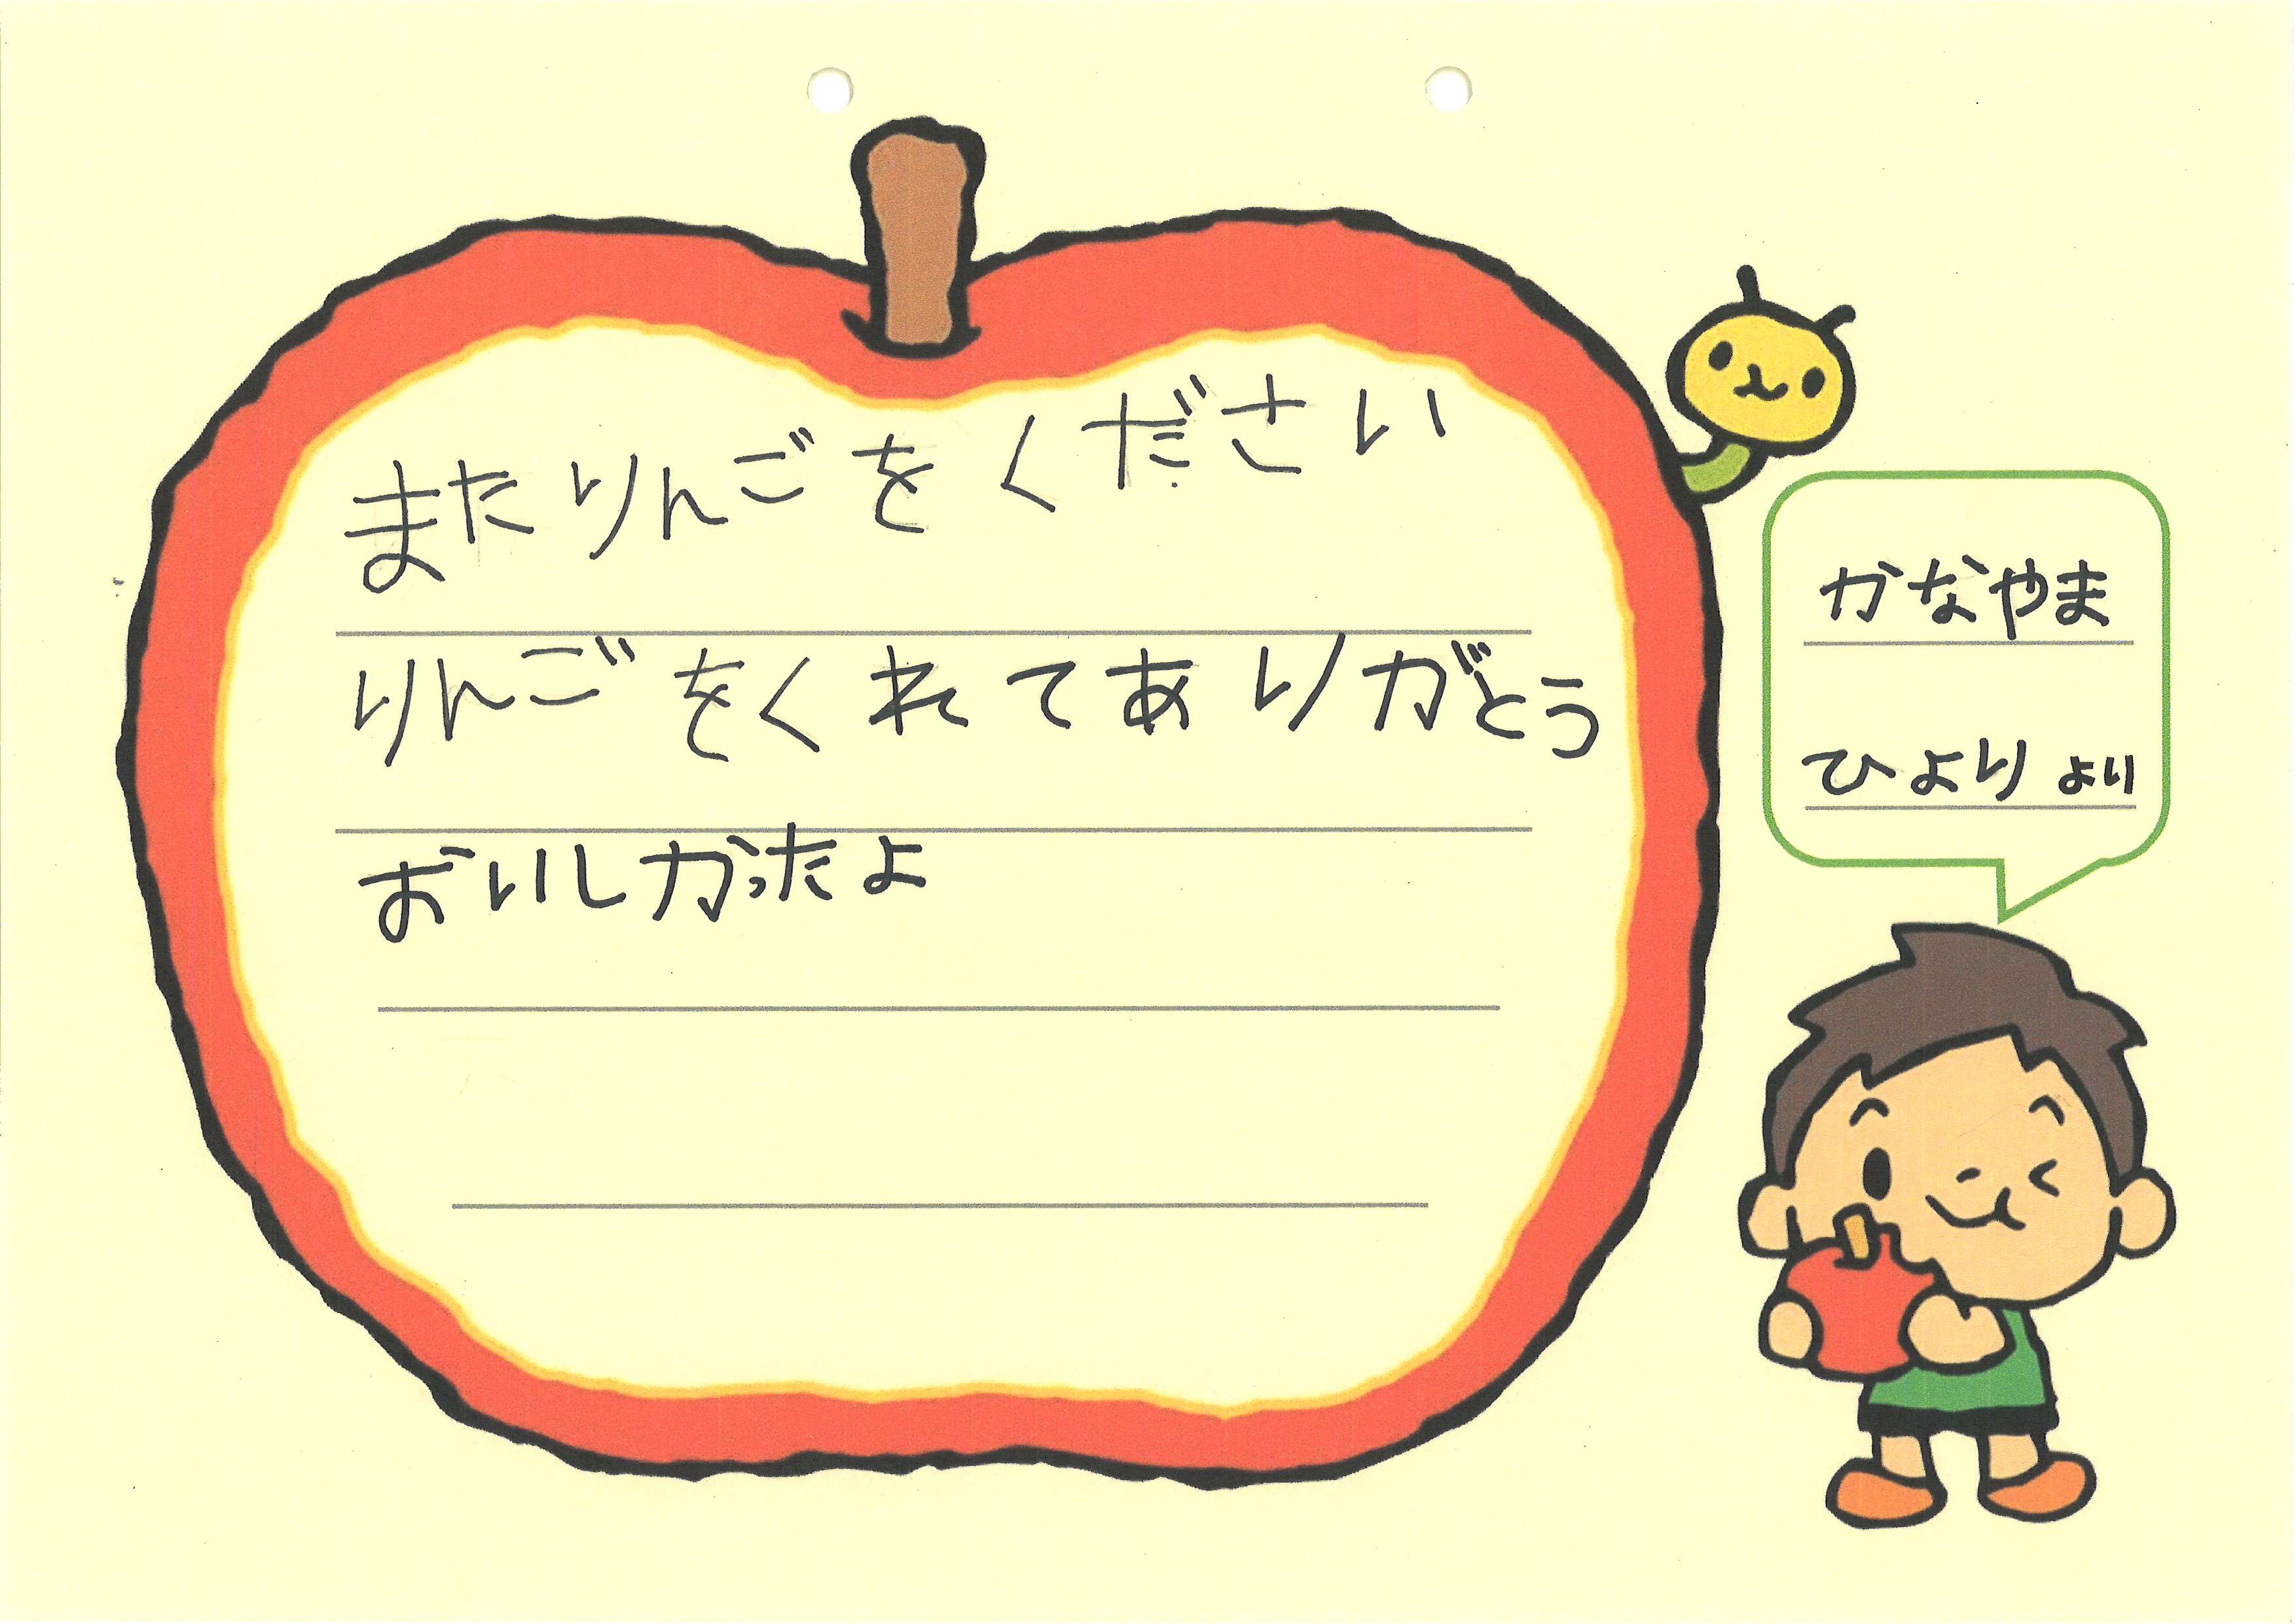 またりんごをください
りんごをくれてありがとう
おいしかったよ
かなやま
ひより より